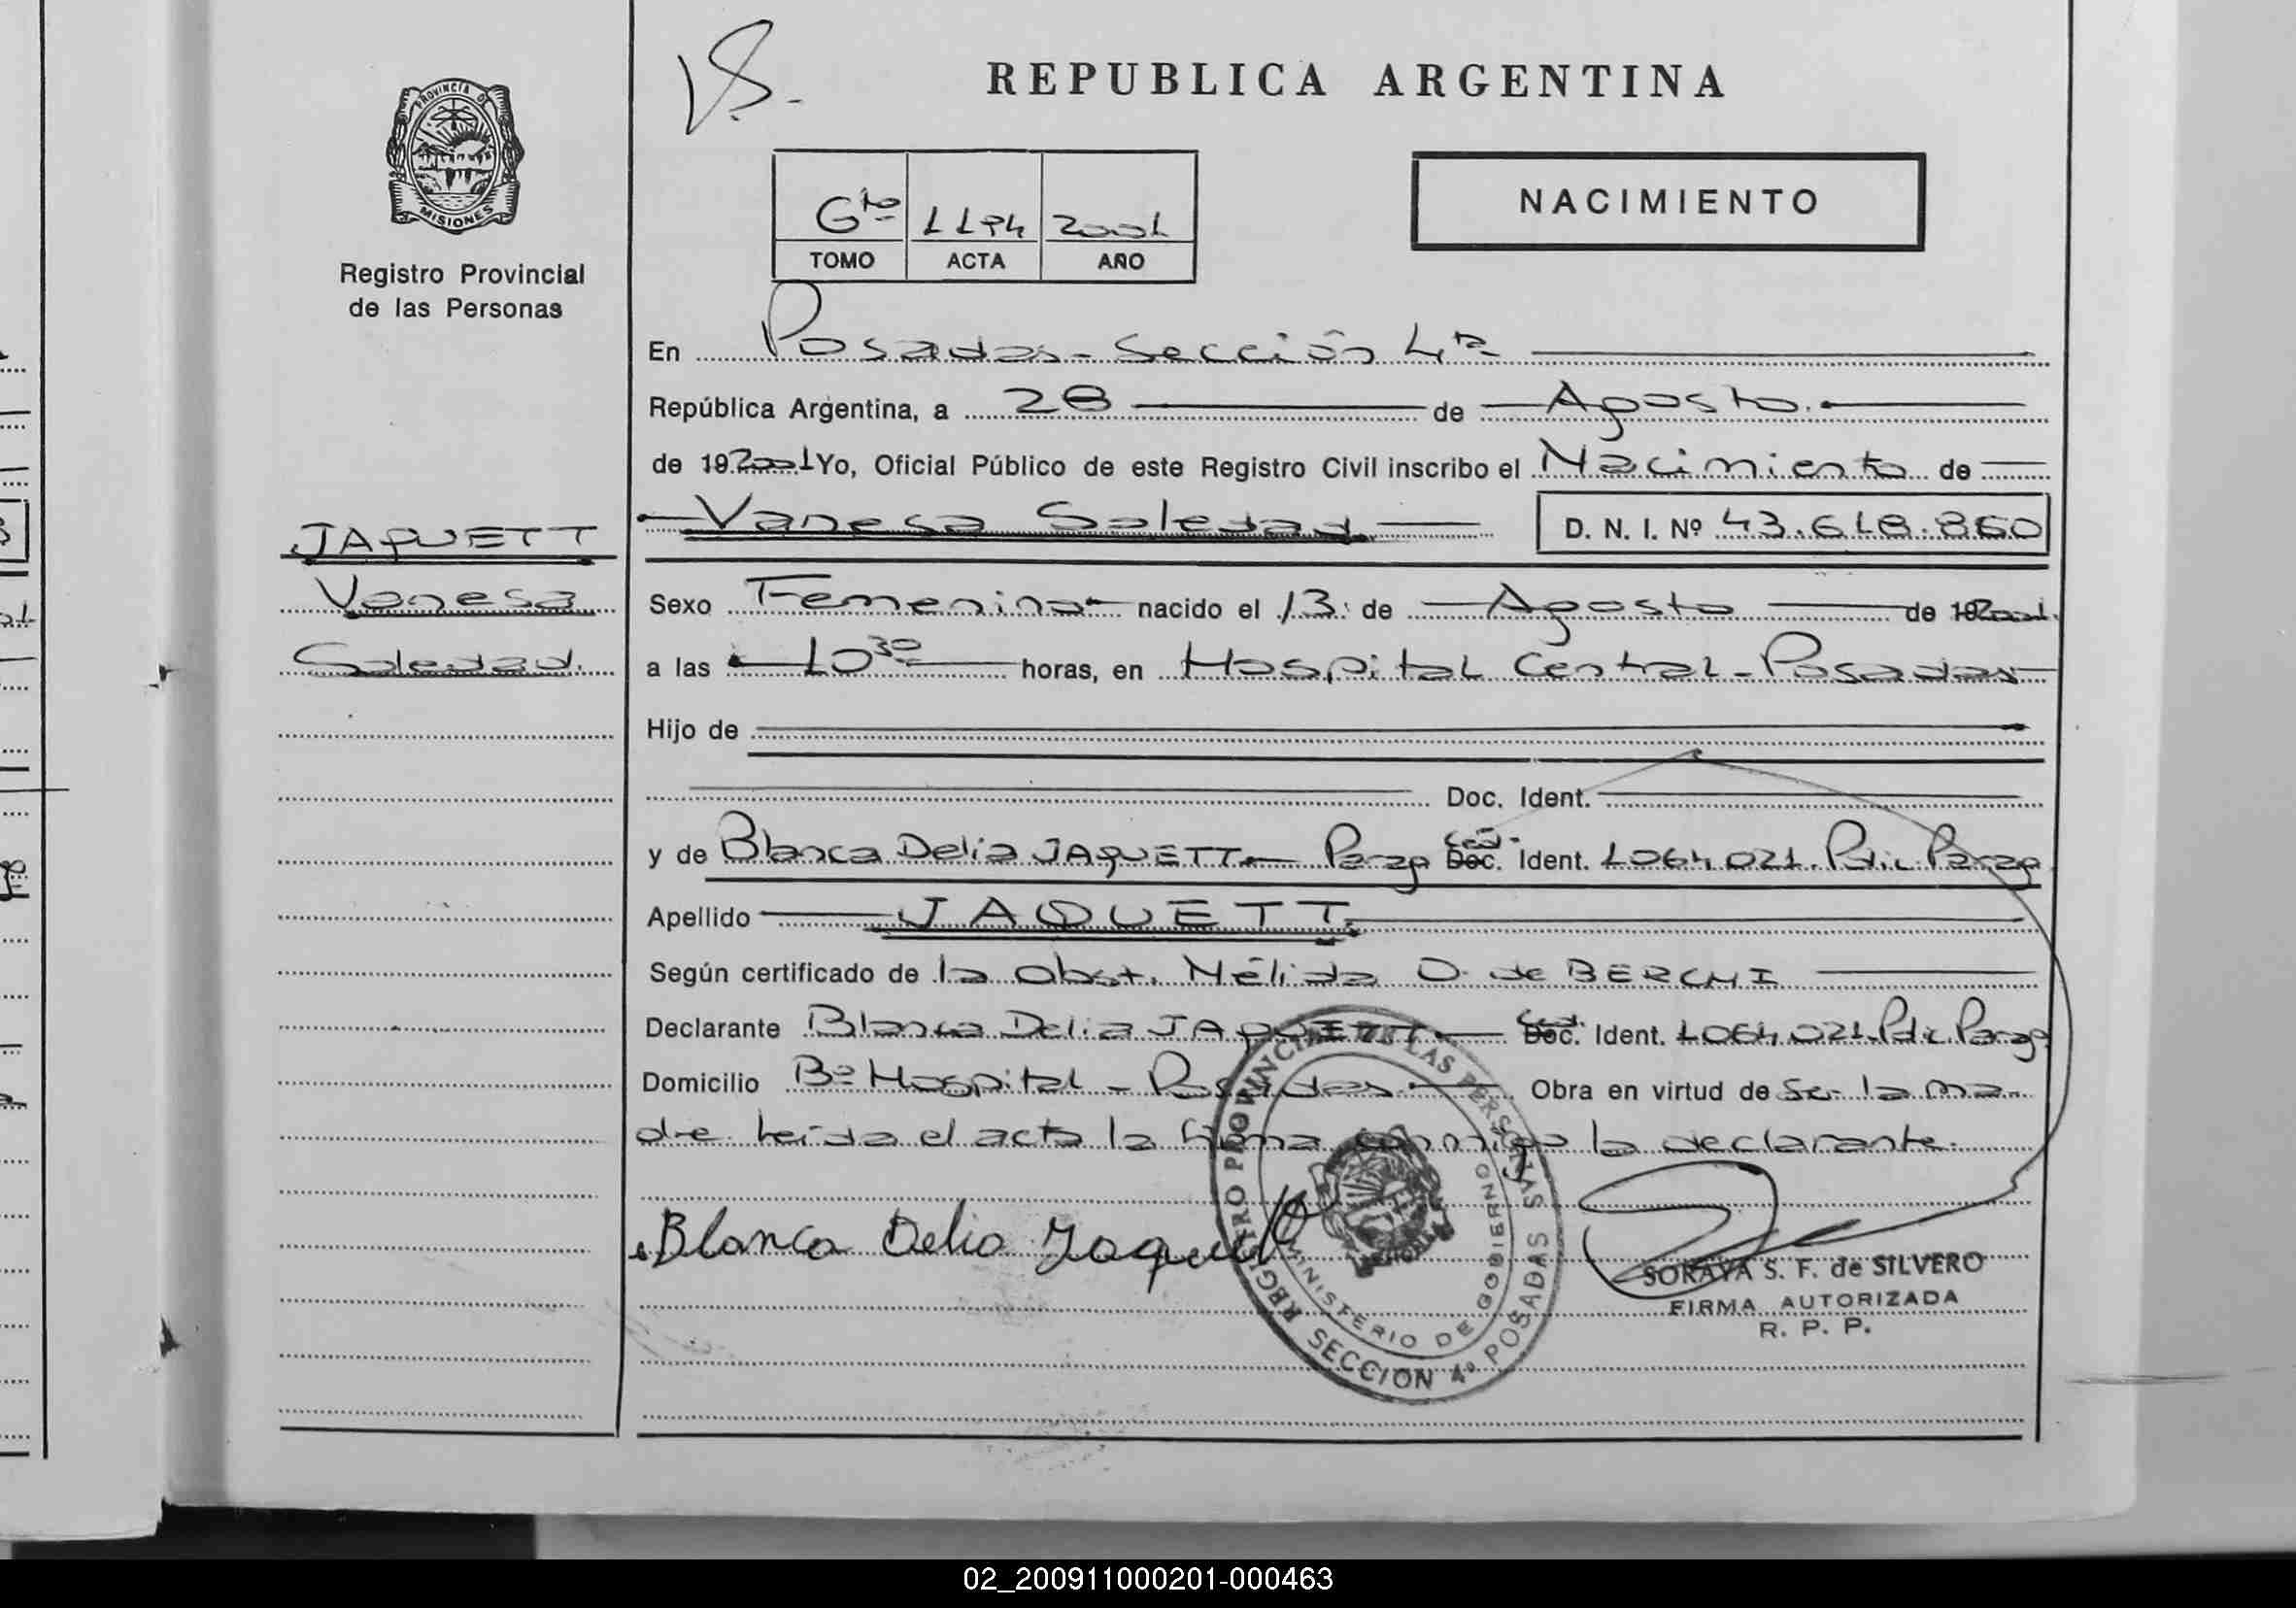 REPUBLICA ARGENTINA
PROVINCIA DE
MISIONES
Registro Provincial
de las Personas
NACIMIENTO
6to 1194 2001
TOMO ACTA AÑO
En Posadas - Sección 4ta
República Argentina, a 28 de Agosto.
de 19 2001 Yo, Oficial Público de este Registro Civil inscribo el Nacimiento de
Vanesa Soledad. D. N. I. Nº 43.618.860
JAQUETT
Vanesa
Soledad.
Sexo Femenino nacido el 13 de Agosto de 19 2001.
a las 10 30 horas, en Hospital Central - Posadas
Hijo de
Doc. Ident.
y de Blanca Delia JAQUETT Parag Ced. Doc. Ident. 1064.021. Polic Parag
Apellido JAQUETT.
Según certificado de la Obst. Nélida O. de BERCHI
Declarante Blanca Delia JAQUETT Ced. Doc. Ident. 1064.021. Polic Parag
Domicilio Bº Hospital - Posadas Obra en virtud de ser la ma
dre leida el acta la firma conmigo la declarante.
Blanca Delia Jaquett
REGISTRO PROVINCIAL DE LAS PERSONAS
MINISTERIO DE GOBIERNO
SECCION 4º POSADAS
SORAYA S. F. de SILVERO
FIRMA AUTORIZADA
R. P. P.
02_200911000201-000463